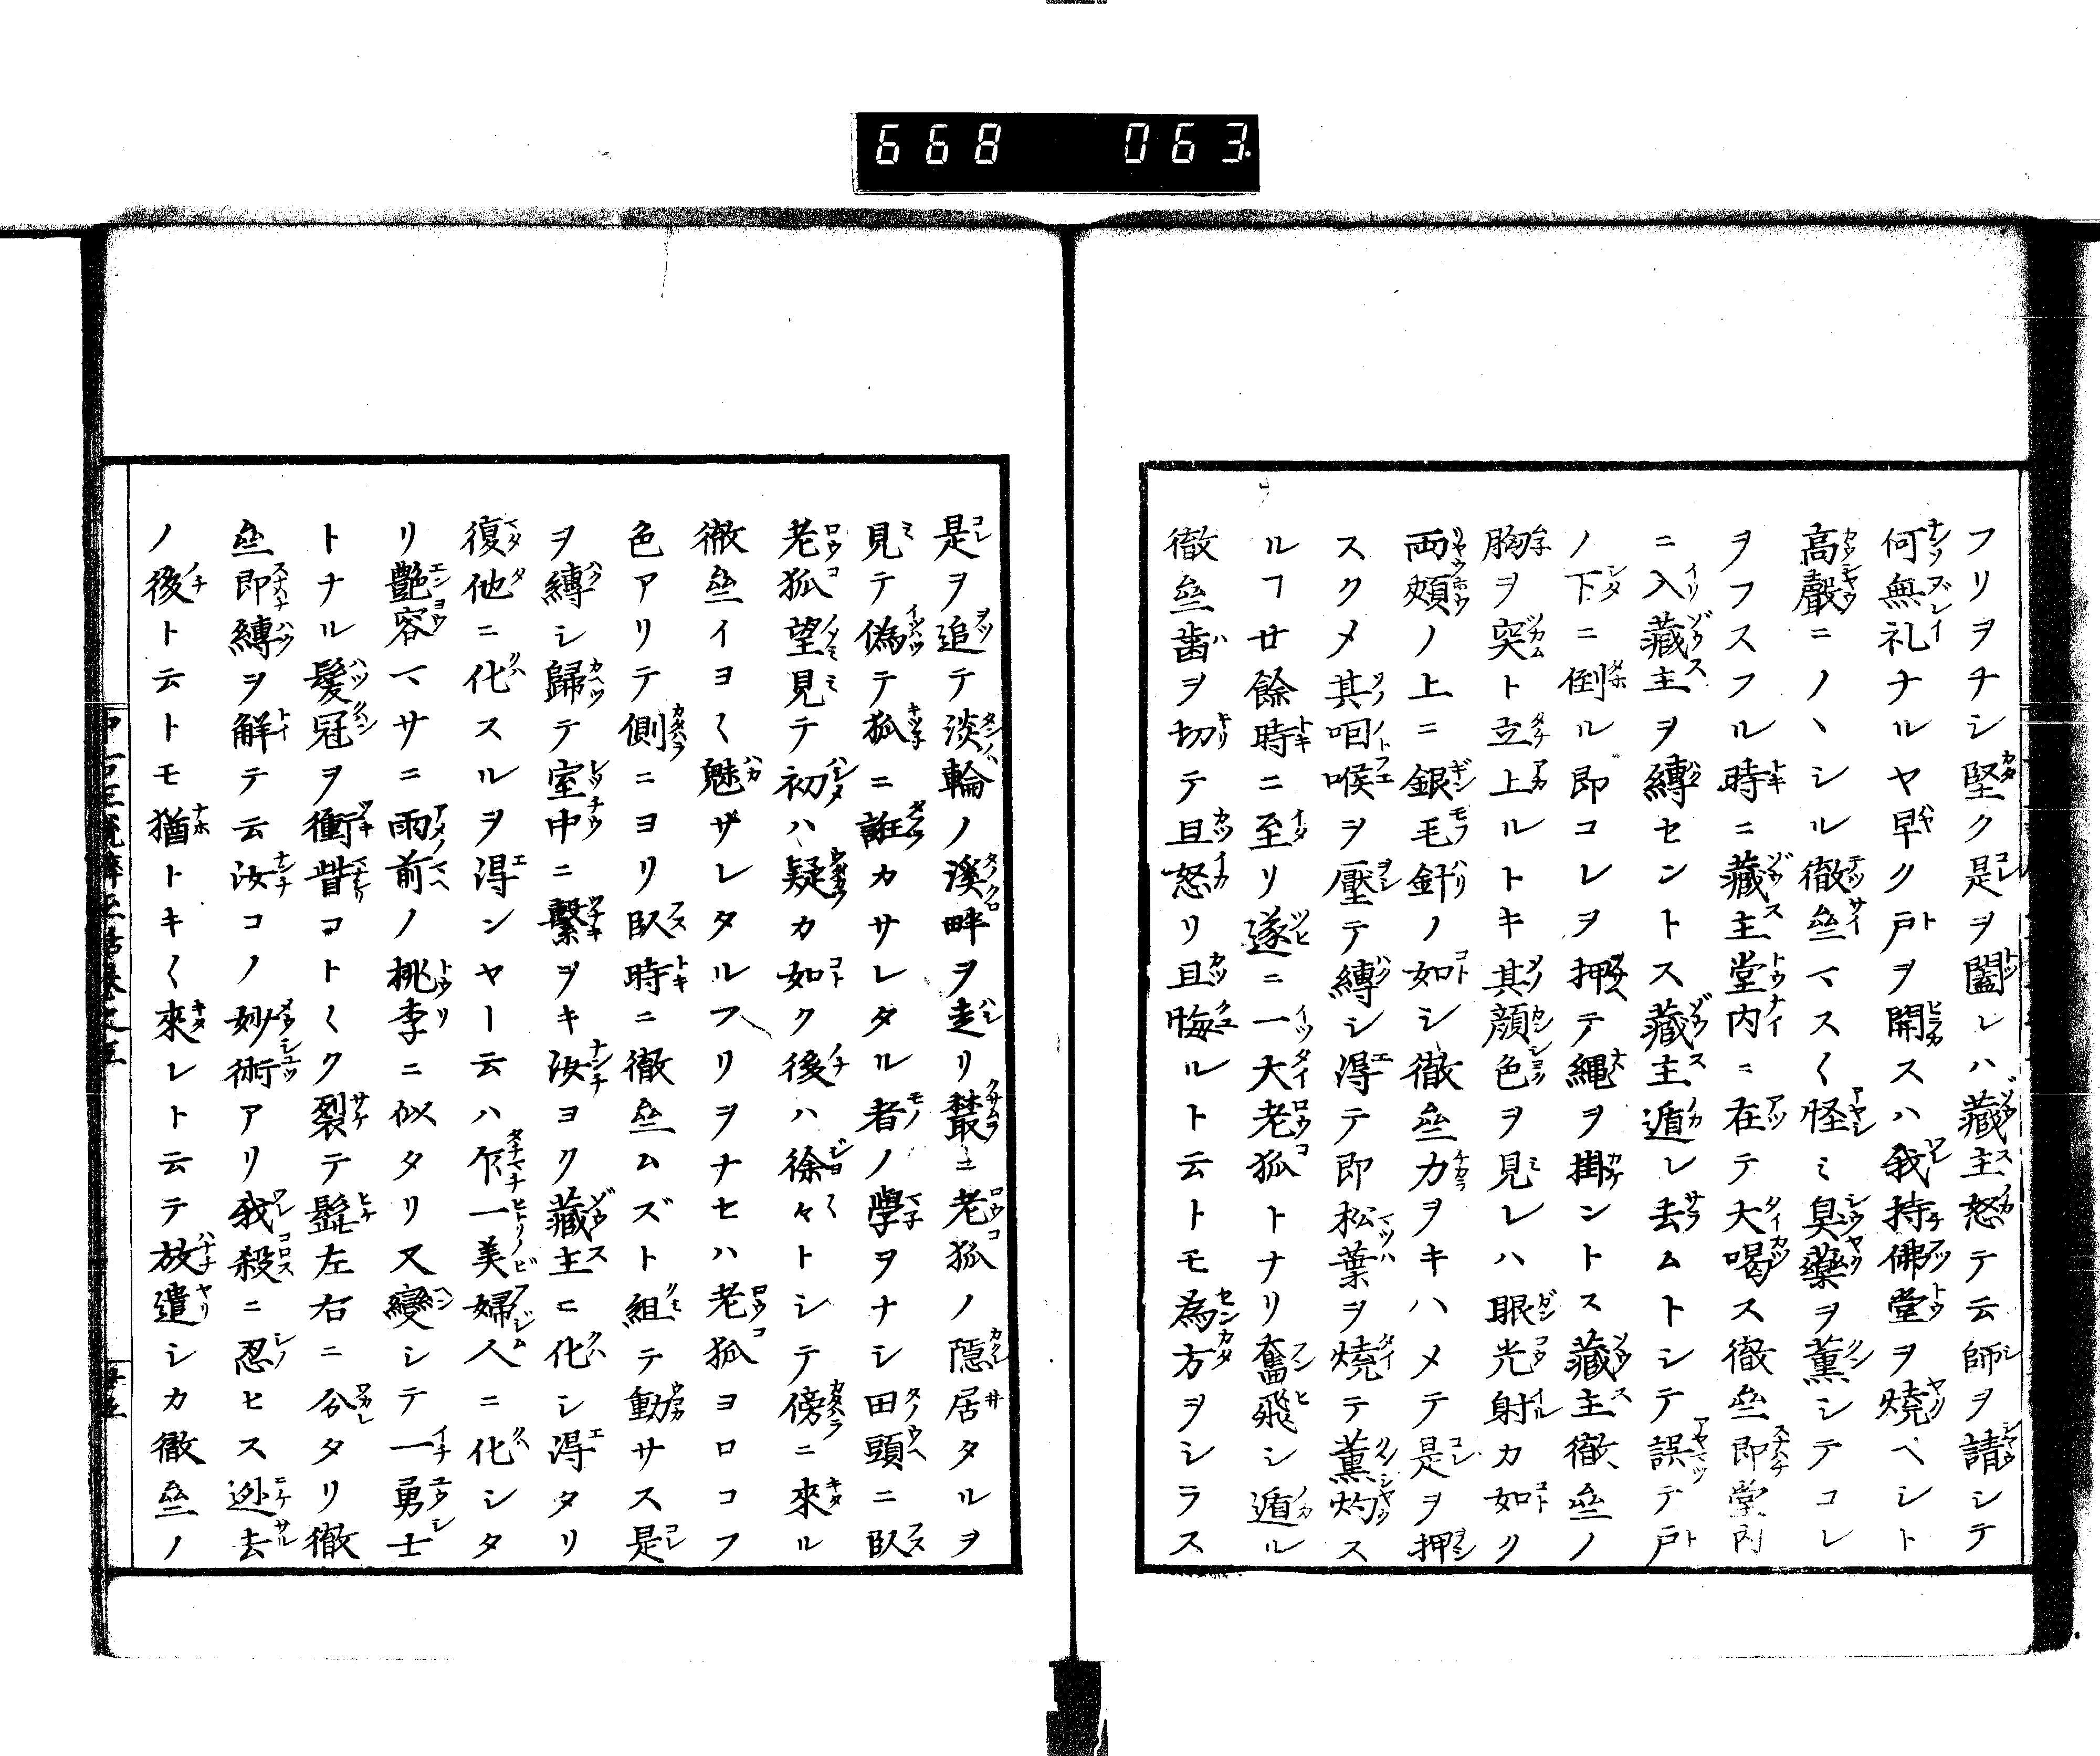 668 063
フリヲナシ堅ク是ヲ闔レハ藏主怒テ云師ヲ請シテ
何無礼ナルヤ早ク戸ヲ開スハ我持佛堂ヲ燒ヘシト
高聲ニノヽシル徹㘴マス〱怪ミ臭藥ヲ薫シテコレ
ヲフスフル時ニ藏主堂内ニ在テ大喝ス徹㘴即堂内
ニ入藏主ヲ縛セントス藏主遁レ去ムトシテ誤テ戸
ノ下ニ倒ル即コレヲ押テ繩ヲ掛ントス藏主徹㘴ノ
胸ヲ突ト立上ルトキ其顔色ヲ見レハ眼光射カ如ク
両頬ノ上ニ銀毛針ノ如シ徹㘴力ヲキハメテ是ヲ押
スクメ其咽喉ヲ壓テ縛シ得テ即松葉ヲ燒テ薫灼ス
ルフ廿餘時ニ至リ遂ニ一大老狐トナリ奮飛シ遁ル
徹㘴歯ヲ切テ且怒リ且悔ルト云トモ為方ヲシラス
是ヲ追テ淡輪ノ溪畔ヲ走リ叢ニ老狐ノ隠居タルヲ
見テ偽テ狐ニ誑カサレタル者ノ學ヲナシ田頭ニ臥
老狐望見テ初ハ疑カ如ク後ハ徐々トシテ傍ニ來ル
徹㘴イヨ〱魅ザレタルフリヲナセハ老狐ヨロコフ
色アリテ側ニヨリ臥時ニ徹㘴ムズト組テ動サス是
ヲ縛シ歸テ室中ニ繋ヲキ汝ヨク藏主ニ化シ得タリ
復他ニ化スルヲ得ンヤー云ハ乍一美婦人ニ化シタ
リ艶容マサニ雨前ノ桃李ニ似タリ又變シテ一勇士
トナル髪冠ヲ衝眥コト〱ク裂テ髭左右ニ分タリ徹
㘴即縛ヲ解テ云汝コノ妙術アリ我殺ニ忍ヒス迯去
ノ後ト云トモ猶トキ〱來レト云テ放遣シカ徹㘴ノ